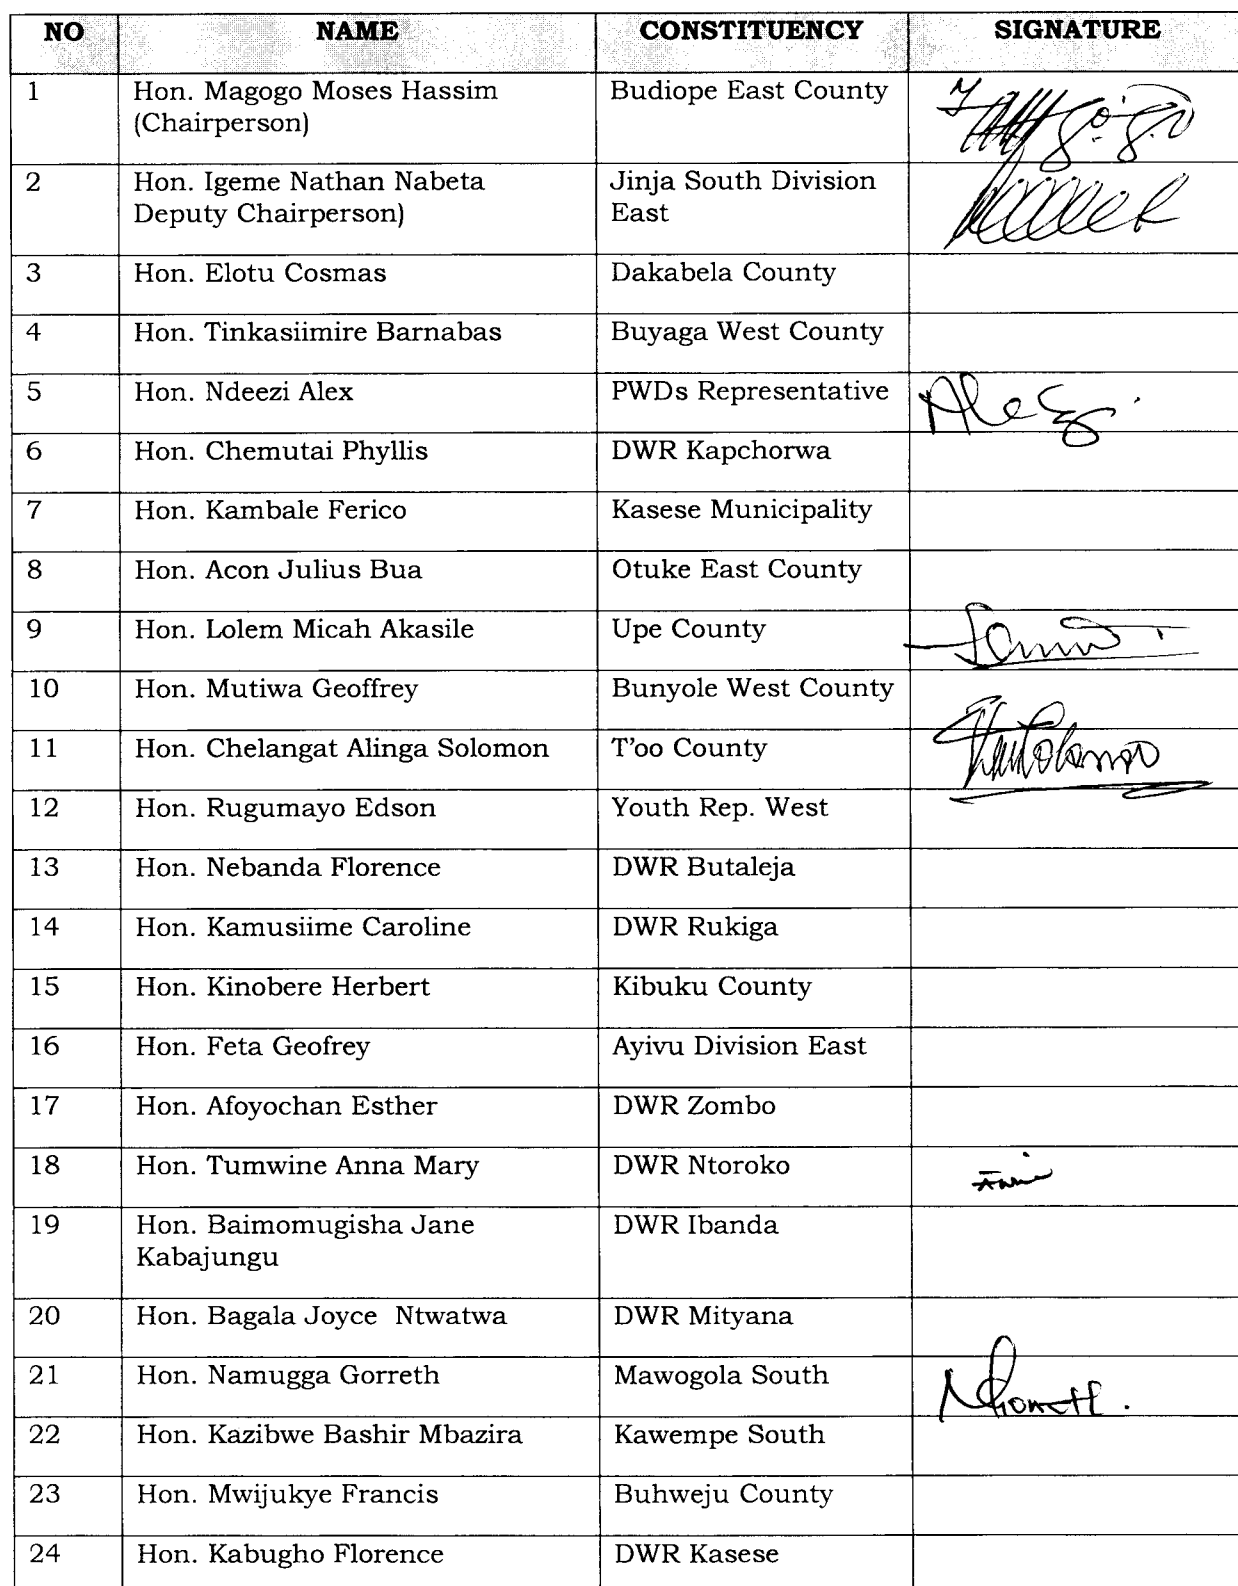 NO NAME CONSTITUENCY SIGNATURE
1 Hon. Magogo Moses Hassim Budiope East County
(Chairperson)
2 Hon. Igeme Nathan Nabeta Jinja South Division
Deputy Chairperson) East
3 Hon. Elotu Cosmas Dakabela County
4 Hon. Tinkasiimire Barnabas Buyaga West County
5 Hon. Ndeezi Alex PWDs Representative
6 Hon. Chemutai Phyllis DWR Kapchorwa
7 Hon. Kambale Ferico Kasese Municipality
8 Hon. Acon Julius Bua Otuke East County
9 Hon. Lolem Micah Akasile Upe County
10 Hon. Mutiwa Geoffrey Bunyole West County
11 Hon. Chelangat Alinga Solomon T'oo County
12 Hon. Rugumayo Edson Youth Rep. West
13 Hon. Nebanda Florence DWR Butaleja
14 Hon. Kamusiime Caroline DWR Rukiga
15 Hon. Kinobere Herbert Kibuku County
16 Hon. Feta Geofrey Ayivu Division East
17 Hon. Afoyochan Esther DWR Zombo
18 Hon. Tumwine Anna Mary DWR Ntoroko
19 Hon. Baimomugisha Jane DWR Ibanda
Kabajungu
20 Hon. Bagala Joyce Ntwatwa DWR Mityana
21 Hon. Namugga Gorreth Mawogola South
22 Hon. Kazibwe Bashir Mbazira Kawempe South
23 Hon. Mwijukye Francis Buhweju County
24 Hon. Kabugho Florence DWR Kasese